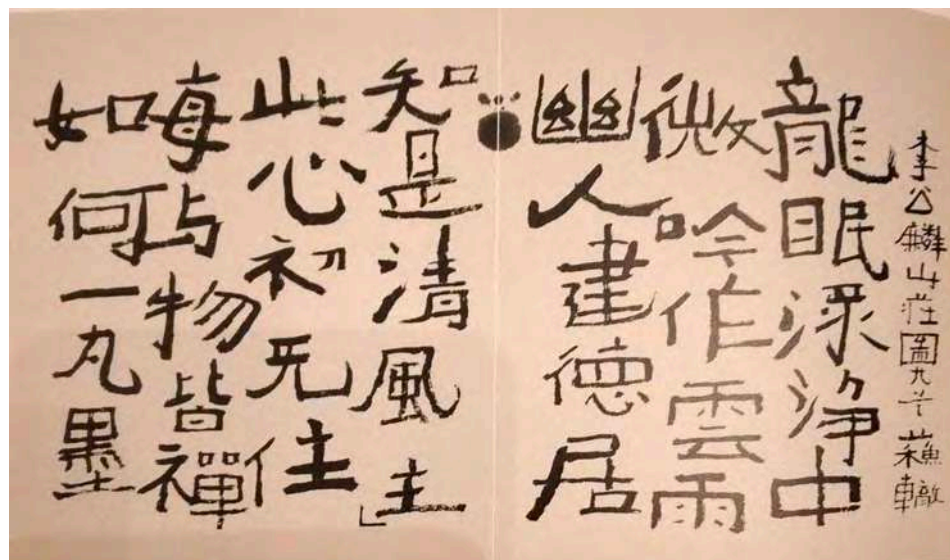 李公麟山庄圖九首蘓轍
龍眠淥浄中
微吟作雲雨
幽人建德居
知是清風主」
此心初无住
每与物皆禪
如何一丸墨